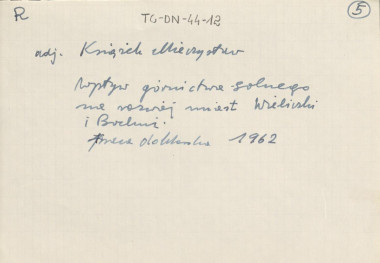 R TG-DN-44-12 5
adj. Książek Mieczysław
Wpływ górnictwa solnego
na rozwój miast Wieliczki
i Bochni.
praca doktorska 1962